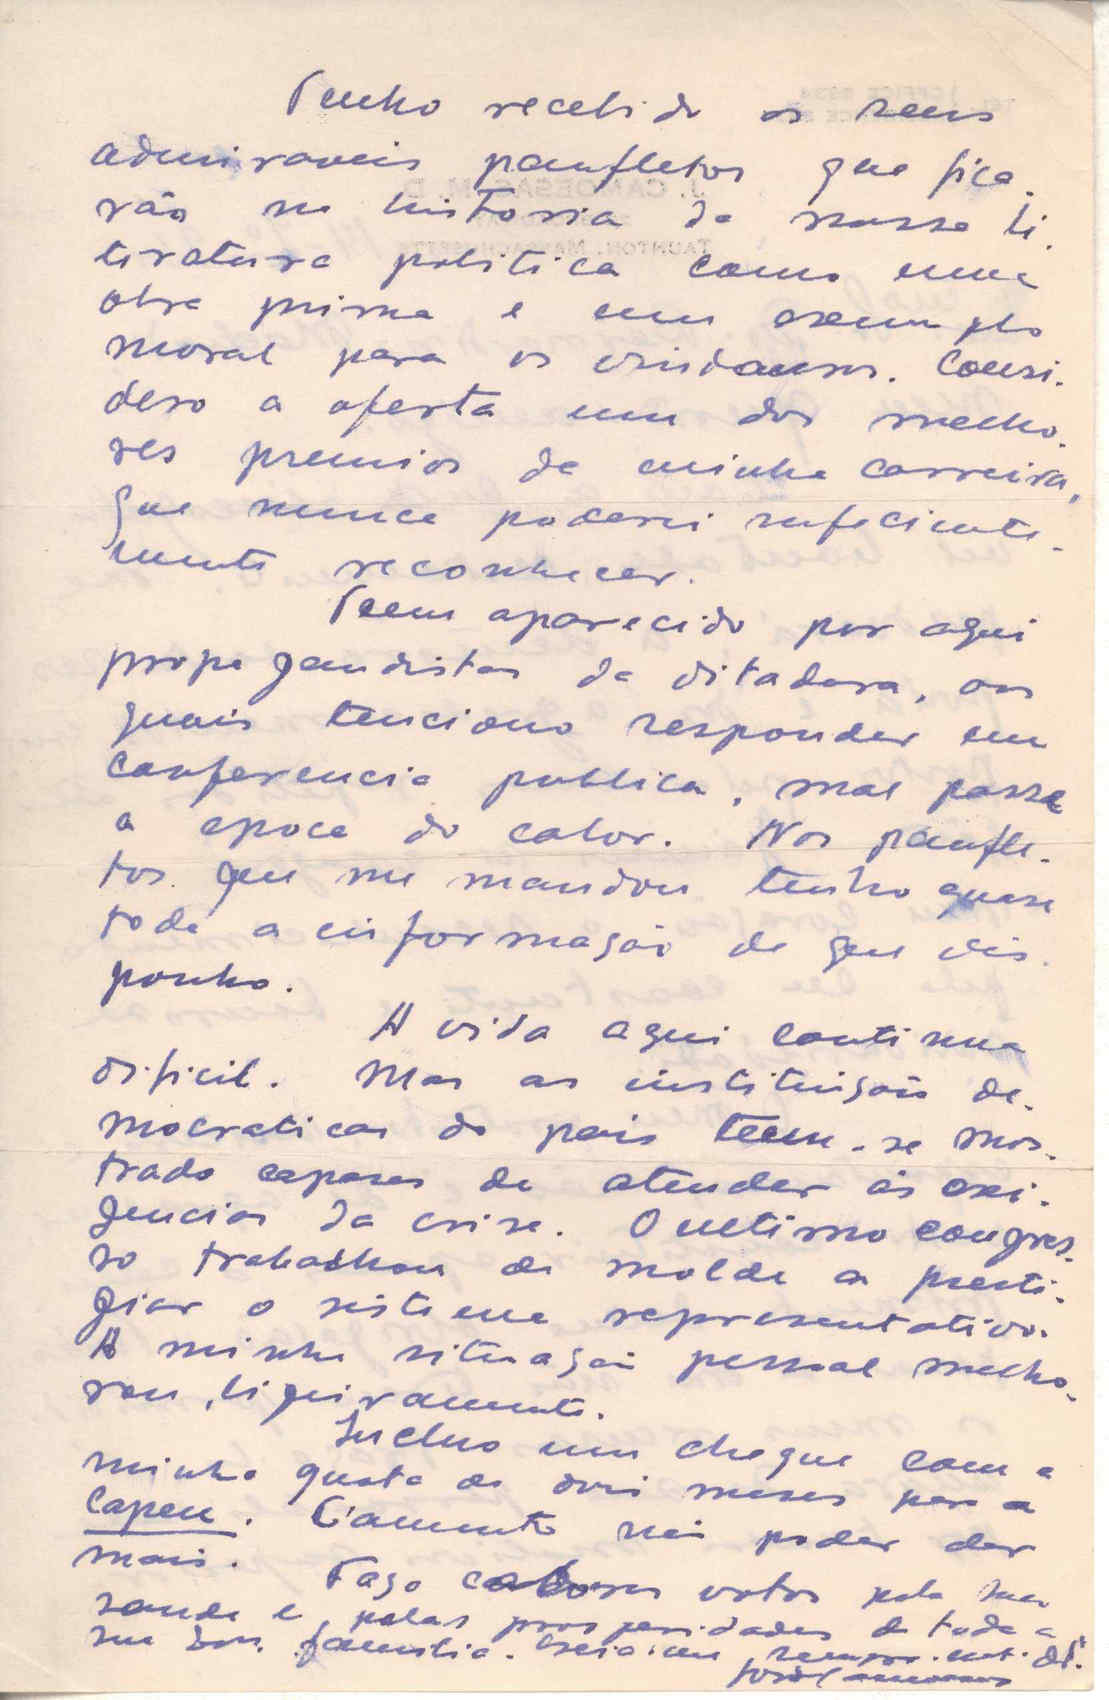 Tenho recebido os seus
admiraveis panfletos que fica-
rão na historia da nossa li-
teratura politica como uma
obra prima e um exemplo
moral para os vindouros. Consi-
dero a oferta um dos melho-
res premios da minha carreira,
que nunca poderei suficiente-
mente reconhecer.
Teem aparecido por aqui
propagandistas da ditadura, aos
quais tenciono responder em
conferencia publica, mal passe
a epoca do calor. Nos panfle-
tos que me mandou tenho quase
toda a informação de que dis-
ponho.
A vida aqui continua
dificil. Mas as instituições de-
mocraticas do pais teem-se mos-
trado capases de atender ás exi-
gencias da crise. O ultimo congres-
so trabalhou de molde a presti-
giar o sistema representativo.
A minha situação pessoal melho-
rou, ligeiramente.
Incluo um cheque com a
minha quota de dois meses para a
Capen. Lamento não poder dar
mais.
Faço calorosos votos pela sua
saude e pelas prosperidades de toda a
sua Exma. familia. Creia-me sempre